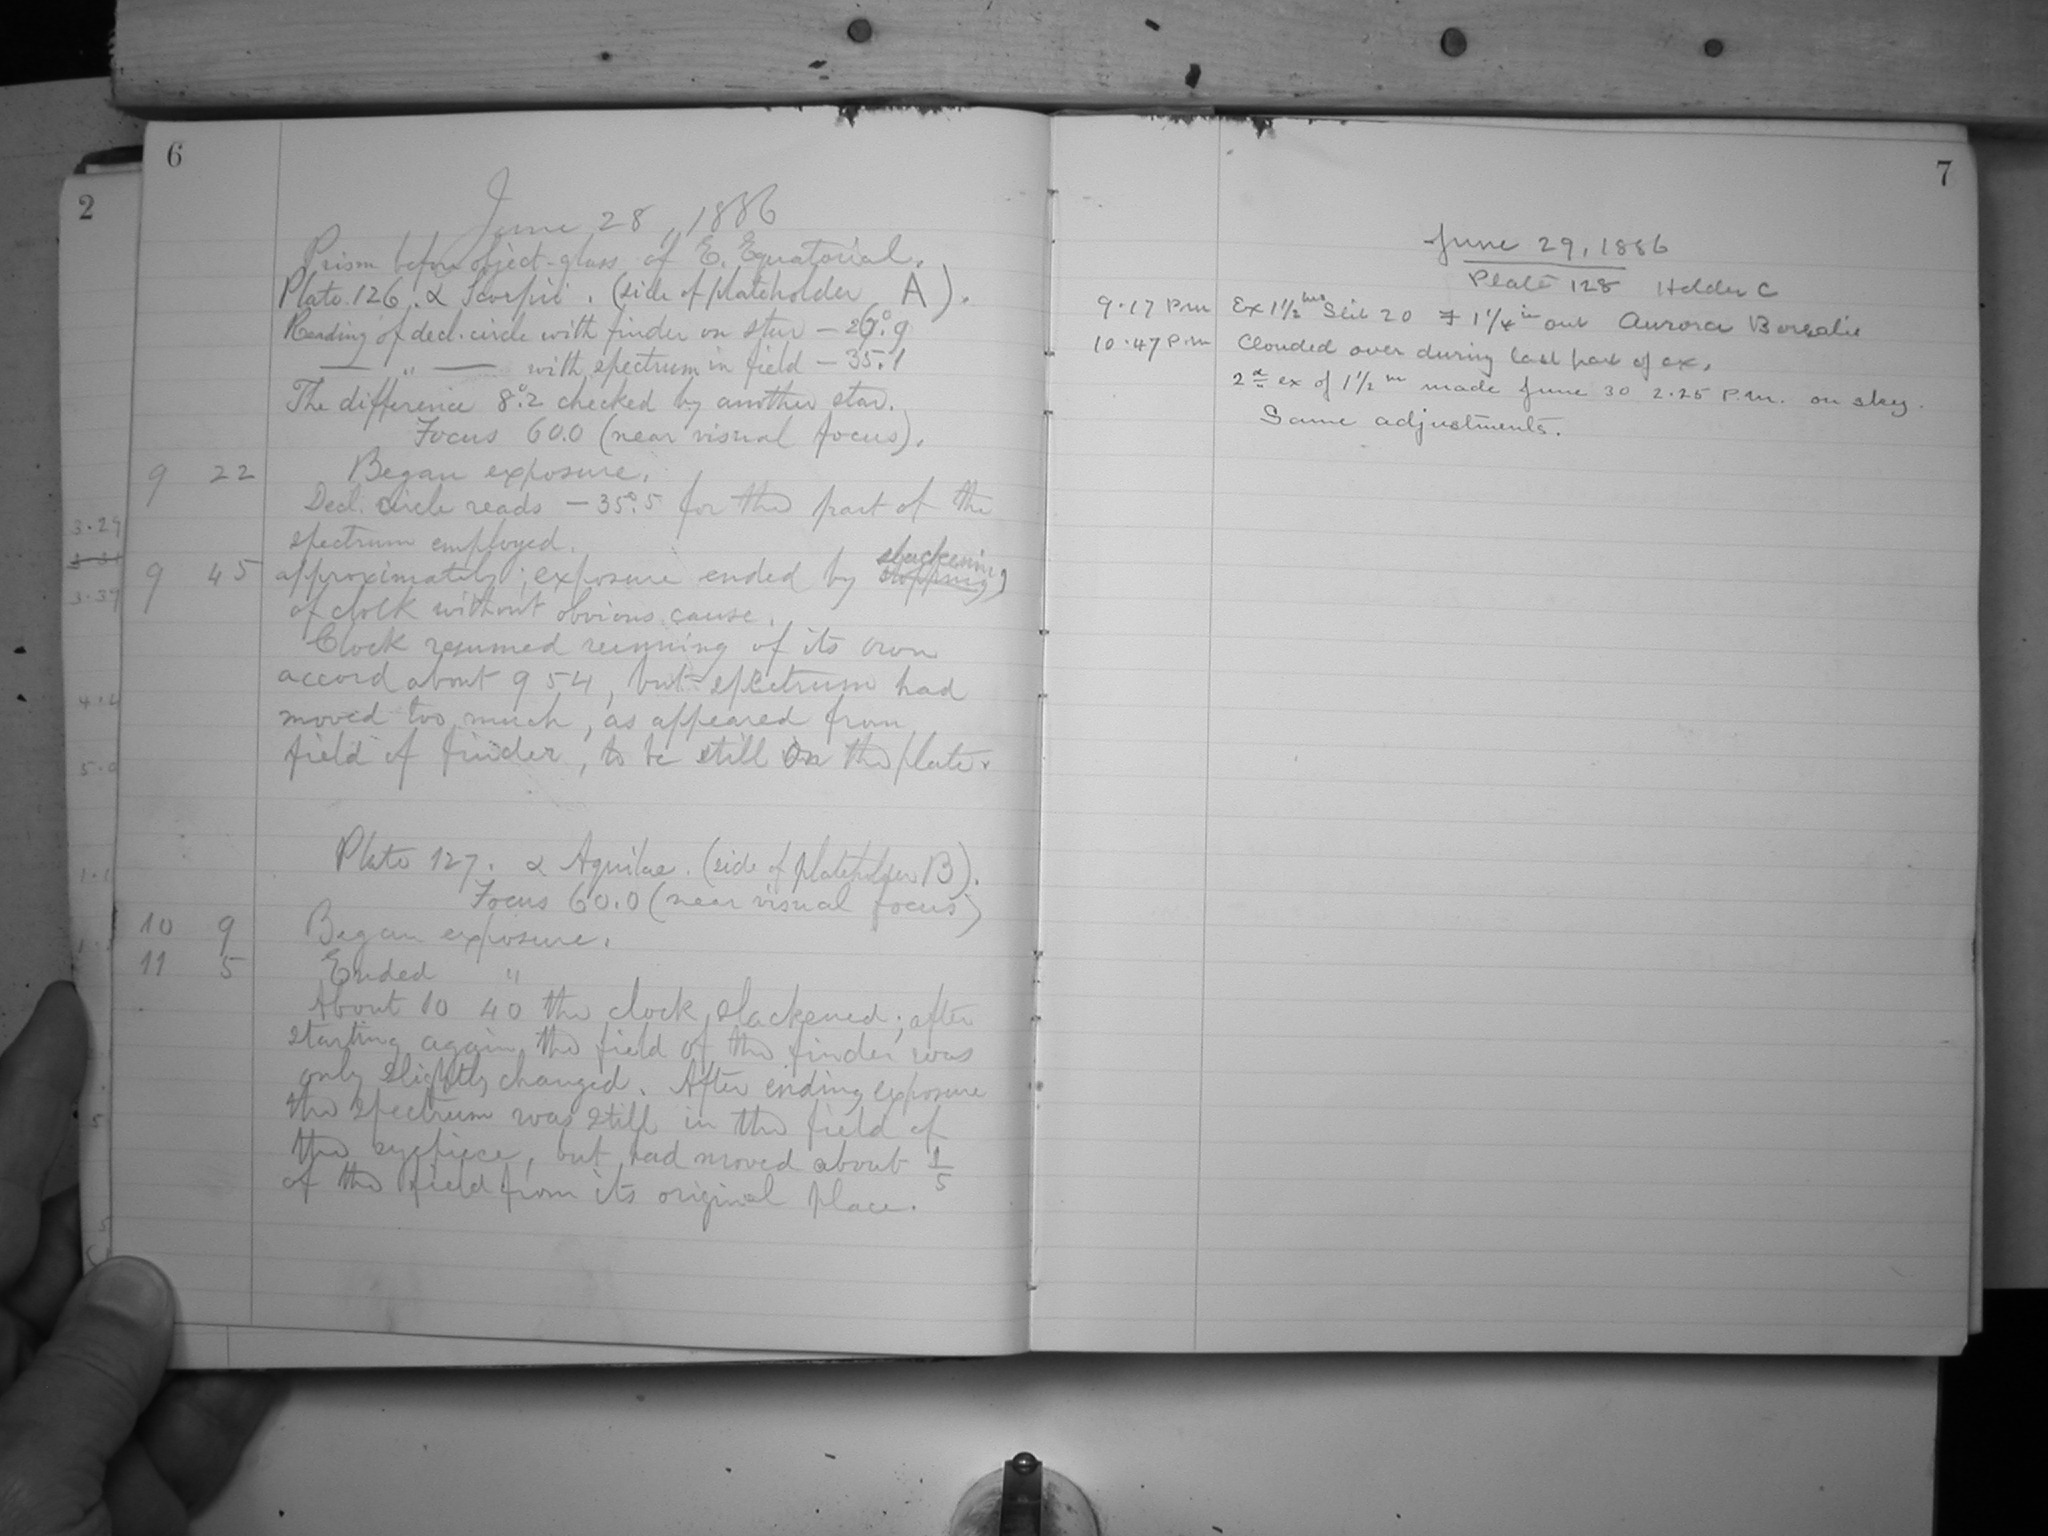 6
June 28, 1886
Prism before object-glass of E. Equatorial.
Plate 126. α Scorpii. (side of plateholder A).
Reading of decl. circle with finder on star — 26°.9
— " — with spectrum in field — 35.1
The difference 8°.2 checked by another star.
Focus 60.0 (near visual focus).
9 22 Began exposure.
Decl. circle reads — 35°.5 for the part of the
spectrum employed.
slackening
9 45 approximately; exposure ended by stopping
of clock without obvious cause.
Clock resumed running of its own
accord about 9 54, but spectrum had
moved too much, as appeared from
field of finder, to be still on the plate.
Plate 127. α Aquilae. (side of plateholder B).
Focus 60.0 (near visual focus)
10 9 Began exposure.
11 5 Ended "
About 10 40 the clock slackened; after
starting again the field of the finder was
only slightly changed. After ending exposure
the spectrum was still in the field of
the eyepiece, but had moved about 1/5
of the field from its original place.
7
June 29, 1886
Plate 128 Holder C
9.17 P.M Ex 1 1/2 hrs Slit 20 F 1 1/4 in out Aurora Borealis
10.47 P.M Clouded over during last part of ex.
2d ex of 1 1/2 m made June 30 2.25 P.M. on sky.
Same adjustments.
2
3.29
3.39